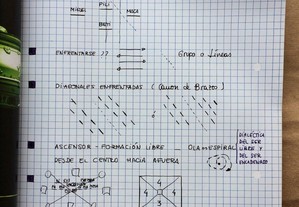 PILI
MIGUEL
MACA
ENFRENTARSE ??
Grupo o Líneas
DIAGONALES ENFRENTADAS
(Canon de Brazos)
ó
ASCENSOR - FORMACIÓN LIBRE
OLA = ESPIRAL
DESDE EL CENTRO HACIA AFUERA
DIALÉCTICA
DEL SER
LIBRE Y
DEL SER
ENCADENADO
4
4 4
3